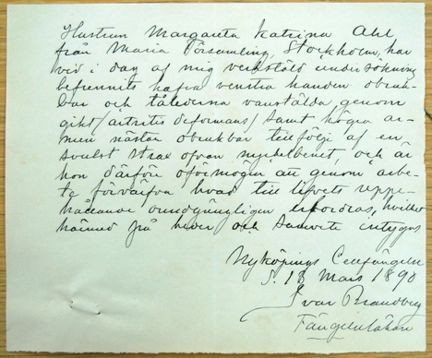 Hustrun Margareta Katrina Ahl
från Maria Församling, Stockholm, har
vid i dag af mig verkstäld undersökning
befunnits hafva venstra handen obruk-
bar och tålederna vanstälda, genom
gikt /artritis deformans/ samt högra ar-
men nästan obrukbar till följe af en
svulst strax ofvan nyckelbenet, och är
hon därför oförmögen att genom arbe-
te förvärfva hvad till lifvets uppe-
hållande oundgängligen erfordras, hvilket
härmed på heder och samvete intygas
Nyköpings Cellfängelse
d. 13 Mars 1890
Ivar Brandberg
Fängelseläkare